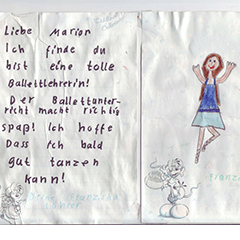 Liebe Marion
Ich finde du
bist eine tolle
Ballettlehrerin!
Der Ballettunter-
richt macht richtig
spaß! Ich hoffe
Dass ich bald
gut tanzen
kann!
Deine Franziska
Franzis